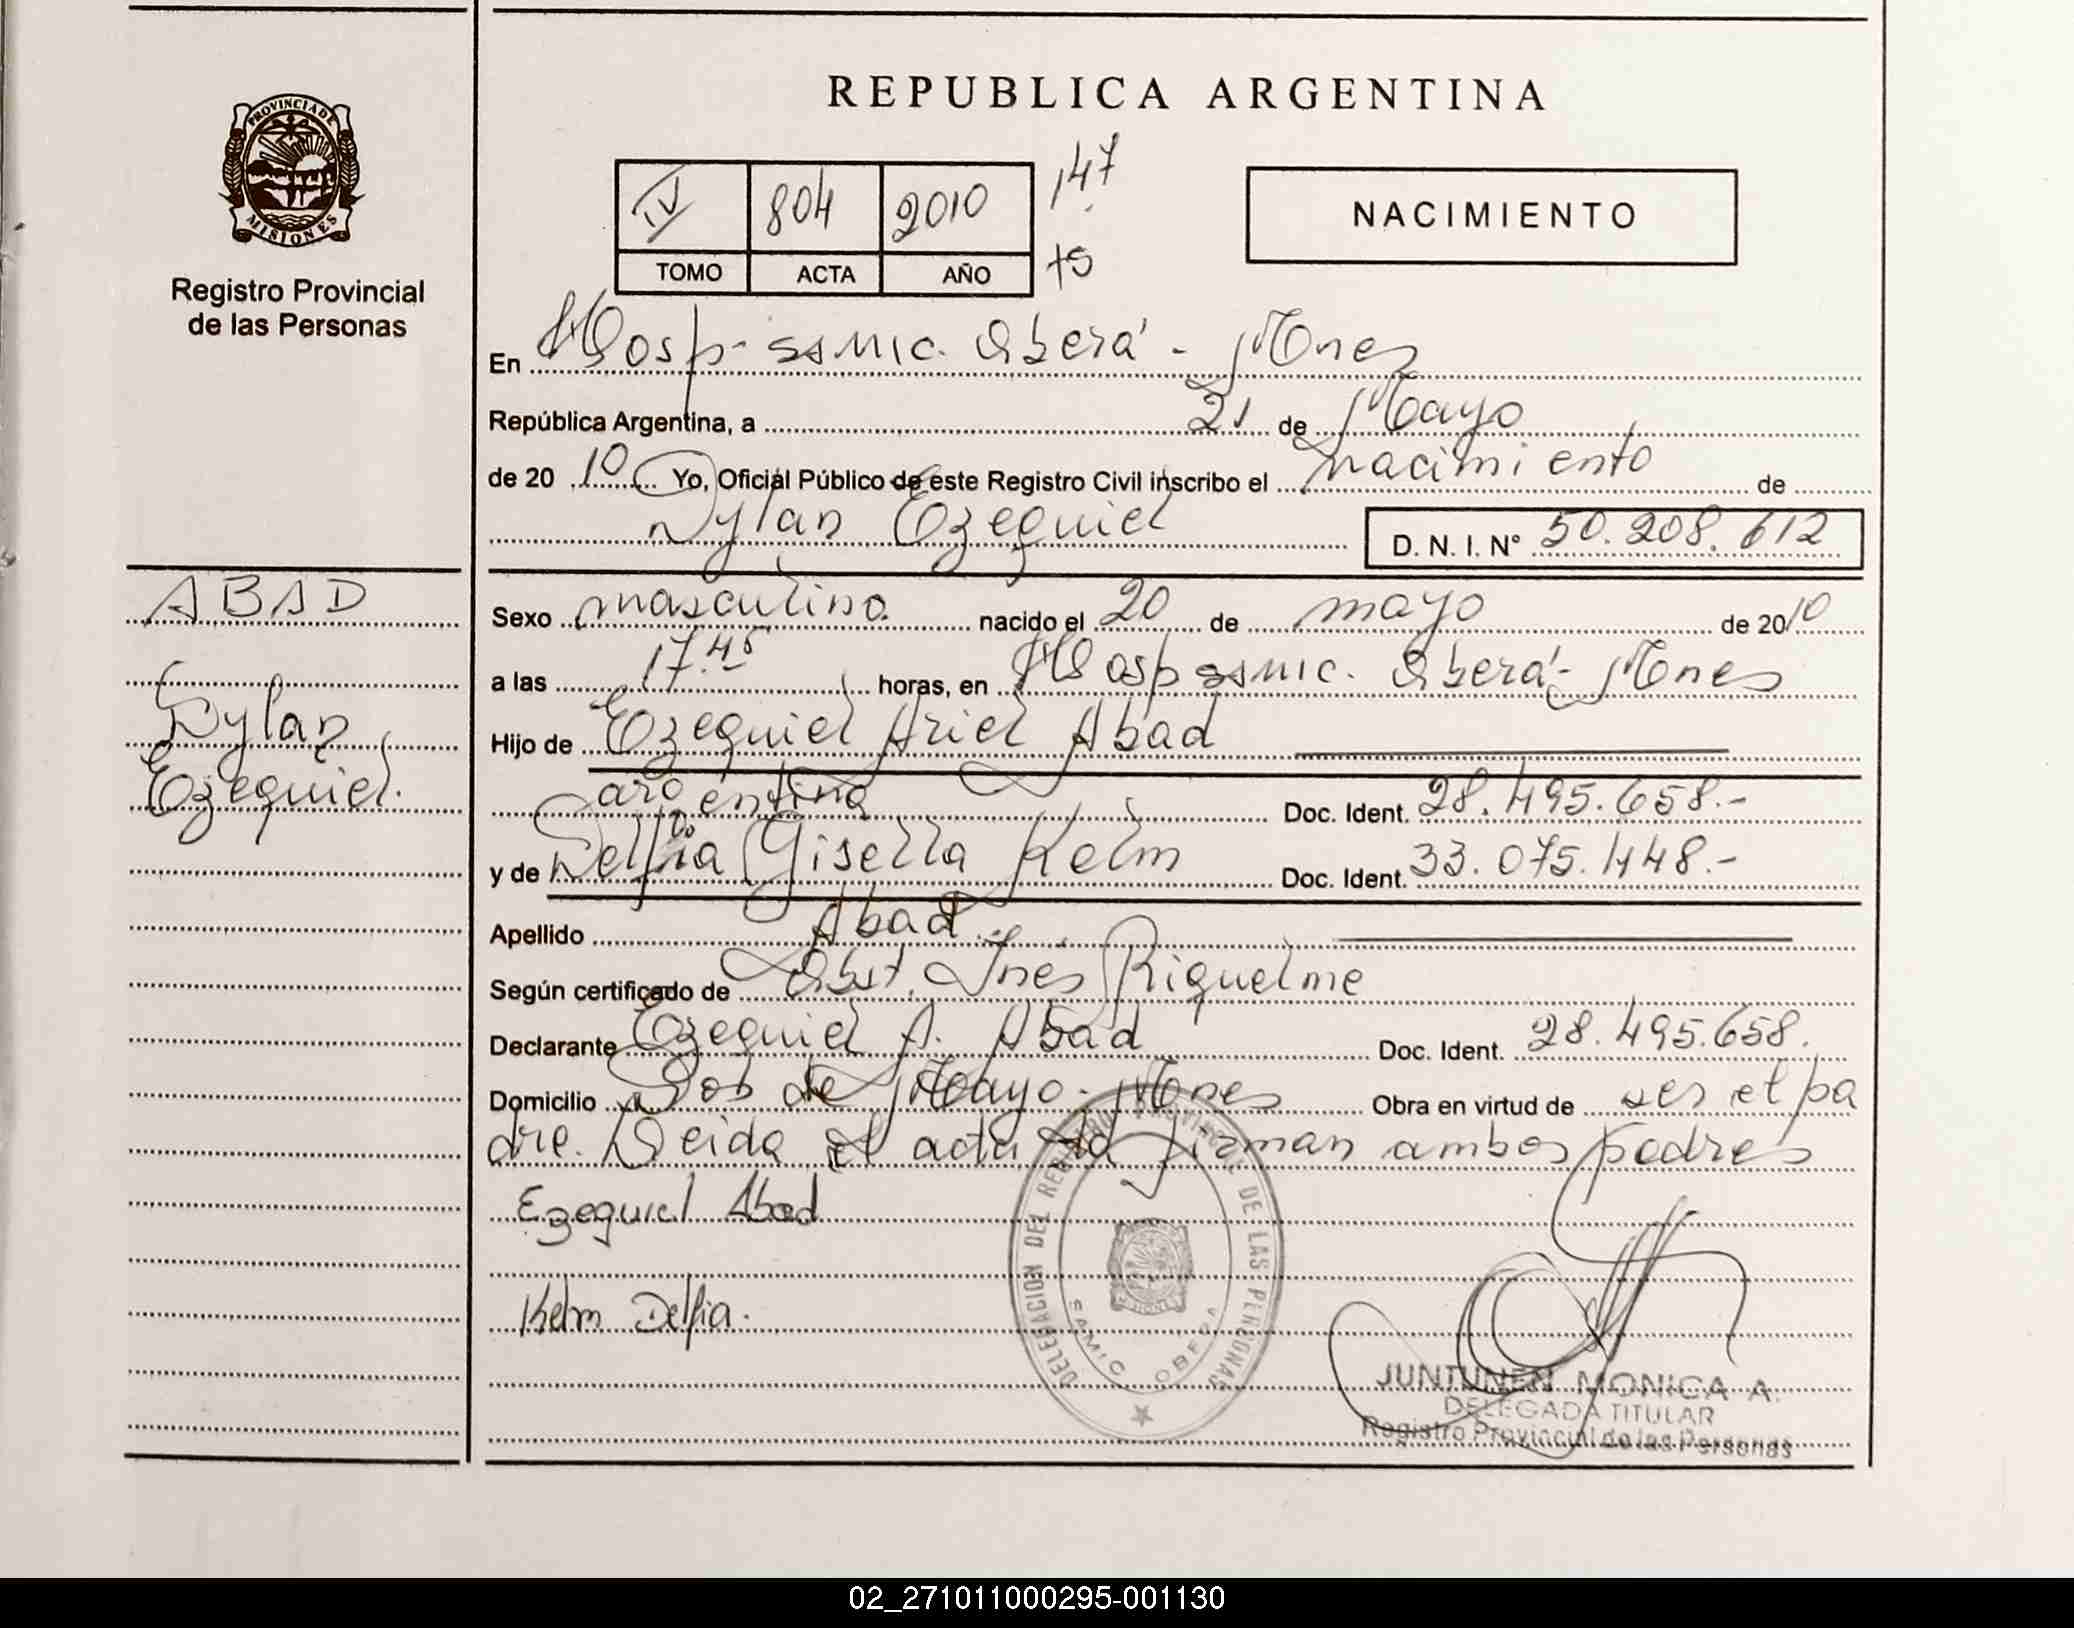 REPUBLICA ARGENTINA
PROVINCIA DE
MISIONES
Registro Provincial
de las Personas
IV 804 2010 147
TOMO ACTA AÑO
NACIMIENTO
En Hosp. ssmic. Oberá - Mnes
República Argentina, a 21 de Mayo
de 2010 Yo, Oficial Público de este Registro Civil inscribo el nacimiento de
Dylan Ezequiel D. N. I. N° 50.208.612
ABAD
Dylan
Ezequiel.
Sexo masculino. nacido el 20 de mayo de 2010
a las 17.45 horas, en Hosp ssmic. Oberá - Mnes
Hijo de Ezequiel Ariel Abad
argentina Doc. Ident. 28.495.658.-
y de Delfia Gisella Kelm Doc. Ident. 33.075.448.-
Apellido Abad.
Según certificado de Obst. Inés Riquelme
Declarante Ezequiel A. Abad Doc. Ident. 28.495.658.
Domicilio Dos de Mayo - Mnes Obra en virtud de ser el pa
dre. Leida el acta la firman ambos padres
Ezequiel Abad
Kelm Delfia.
DELEGACION DEL REGISTRO PROVINCIAL DE LAS PERSONAS
SAMIC OBERA
JUNTUNEN MONICA A.
DELEGADA TITULAR
Registro Provincial de las Personas
02_271011000295-001130